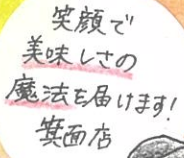 笑顔で
美味しさの
魔法を届けます!
箕面店